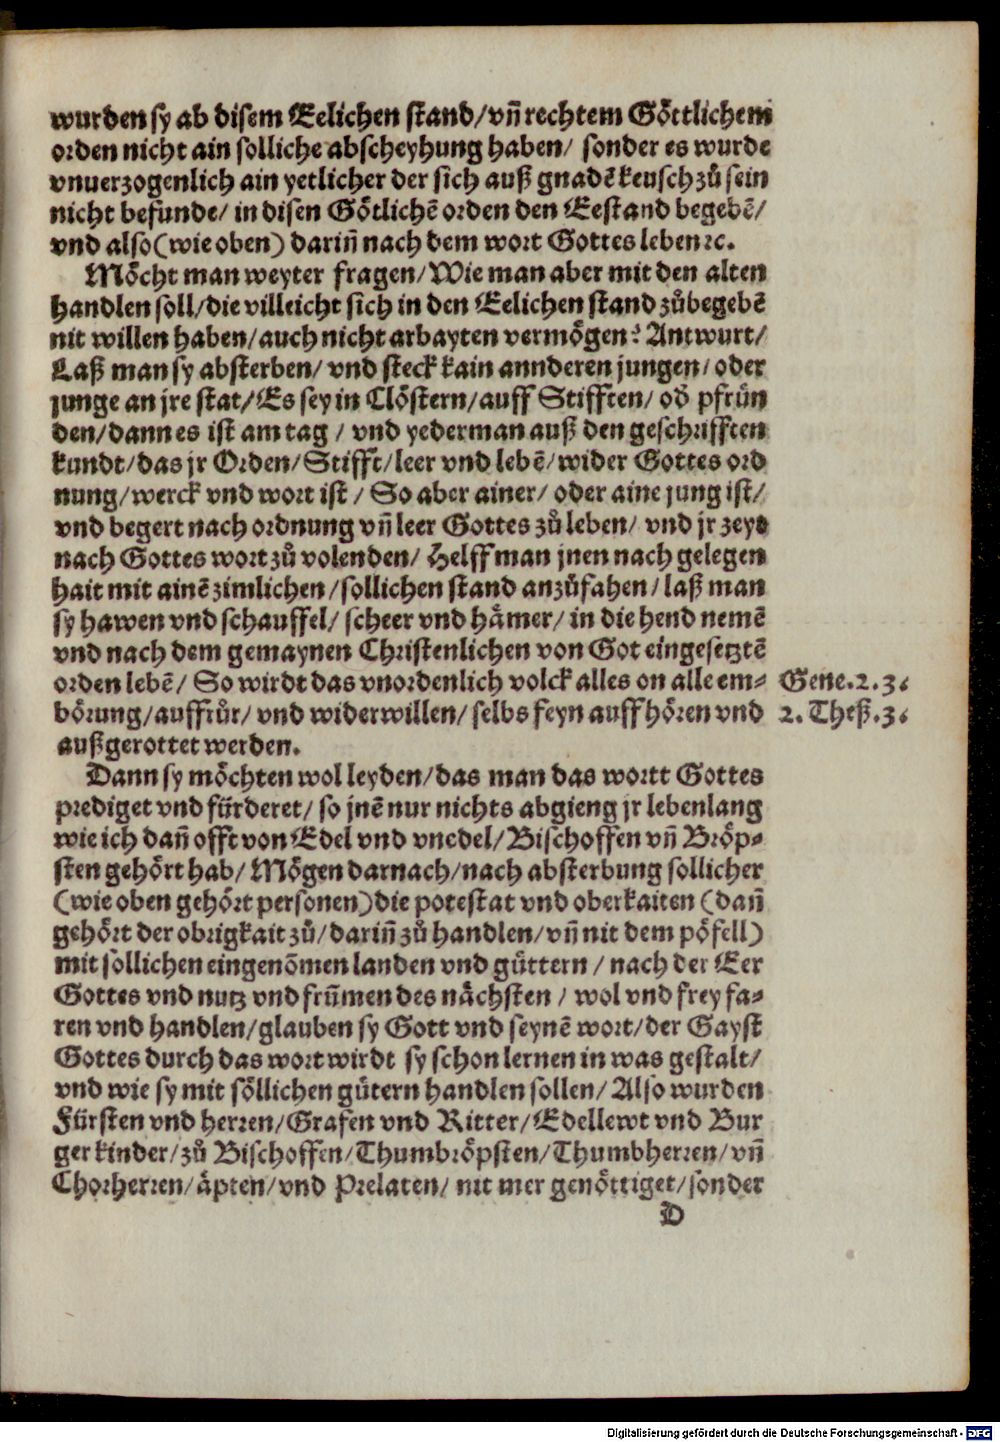 wurden sy ab disem Eelichen stand/vñ rechtem Göttlichem
orden nicht ain solliche abscheyhung haben/ sonder es wurde
vnuerzogenlich ain yetlicher der sich auß gnadẽ keusch zů sein
nicht befunde/ in disen Götlichẽ orden den Eestand begebẽ/
vnd also (wie oben) dariñ nach dem wort Gottes leben ꝛc.
Möcht man weyter fragen/Wie man aber mit den alten
handlen soll/die villeicht sich in den Eelichen stand zůbegebẽ
nit willen haben/auch nicht arbayten vermögen? Antwurt/
Laß man sy absterben/ vnd steck kain annderen jungen/ oder
junge an jre stat/Es sey in Clöstern/auff Stifften/ od̃ pfrün
den/dann es ist am tag / vnd yederman auß den geschrifften
kundt/das jr Orden/Stifft/leer vnd lebẽ/wider Gottes ord
nung/werck vnd wort ist / So aber ainer/ oder aine jung ist/
vnd begert nach ordnung vñ leer Gottes zů leben/ vnd jr zeyt
nach Gottes wort zů volenden/ Helff man jnen nach gelegen
hait mit ainẽ zimlichen/sollichen stand anzůfahen/laß man
sy hawen vnd schauffel/ scheer vnd hämer/ in die hend nemẽ
vnd nach dem gemaynen Christenlichen von Got eingesetztẽ
orden lebẽ/ So wirdt das vnordenlich volck alles on alle em-
Gene.2.3.
börung/auffrůr/ vnd widerwillen/ selbs feyn auffhören vnd
2. Theß.3.
außgerottet werden.
Dann sy möchten wol leyden/das man das wortt Gottes
prediget vnd fürderet/ so jnẽ nur nichts abgieng jr lebenlang
wie ich dañ offt von Edel vnd vnedel/Bischoffen vñ Bröp-
sten gehört hab/ Mögen darnach/nach absterbung sollicher
(wie oben gehört personen)die potestat vnd oberkaiten (dañ
gehört der obrigkait zů/dariñ zů handlen/vñ nit dem pöfell)
mit sollichen eingenõmen landen vnd güttern / nach der Eer
Gottes vnd nutz vnd frũmen des nächsten / wol vnd frey fa-
ren vnd handlen/glauben sy Gott vnd seynẽ wort/der Gayst
Gottes durch das wort wirdt sy schon lernen in was gestalt/
vnd wie sy mit söllichen gütern handlen sollen/ Also wurden
Fürsten vnd herren/Grafen vnd Ritter/Edellewt vnd Bur
ger kinder/zů Bischoffen/Thumbröpsten/Thumbherren/vñ
Chorherren/äpten/vnd Prelaten/ nit mer genöttiget/sonder
D
Digitalisierung gefördert durch die Deutsche Forschungsgemeinschaft - DFG